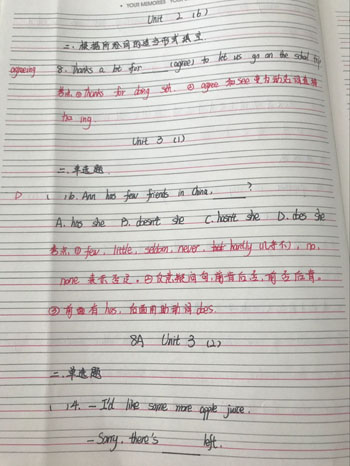 YOUR MEMORIES
Unit 2 (6)
二、根据所给词的适当形式填空
agreeing 8. Thanks a lot for ______ (agree) to let us go on the school trip
考点 ① Thanks for doing sth. ② agree
ing.
Unit 3 (1)
二.单选题
D 16. Ann has few friends in China, ______ ?
A. has she B. doesn't she C. hasn't she D. does she
考点 ① few, little, seldom, never, hardly (几乎不), no,
none 表示否定。反意疑问句,前肯后否,前否后肯。
② 前面有 has, 后面用助动词 does.
8A Unit 3 (2)
二.单选题
14. — I'd like some more apple juice.
— Sorry, there's ______ left.